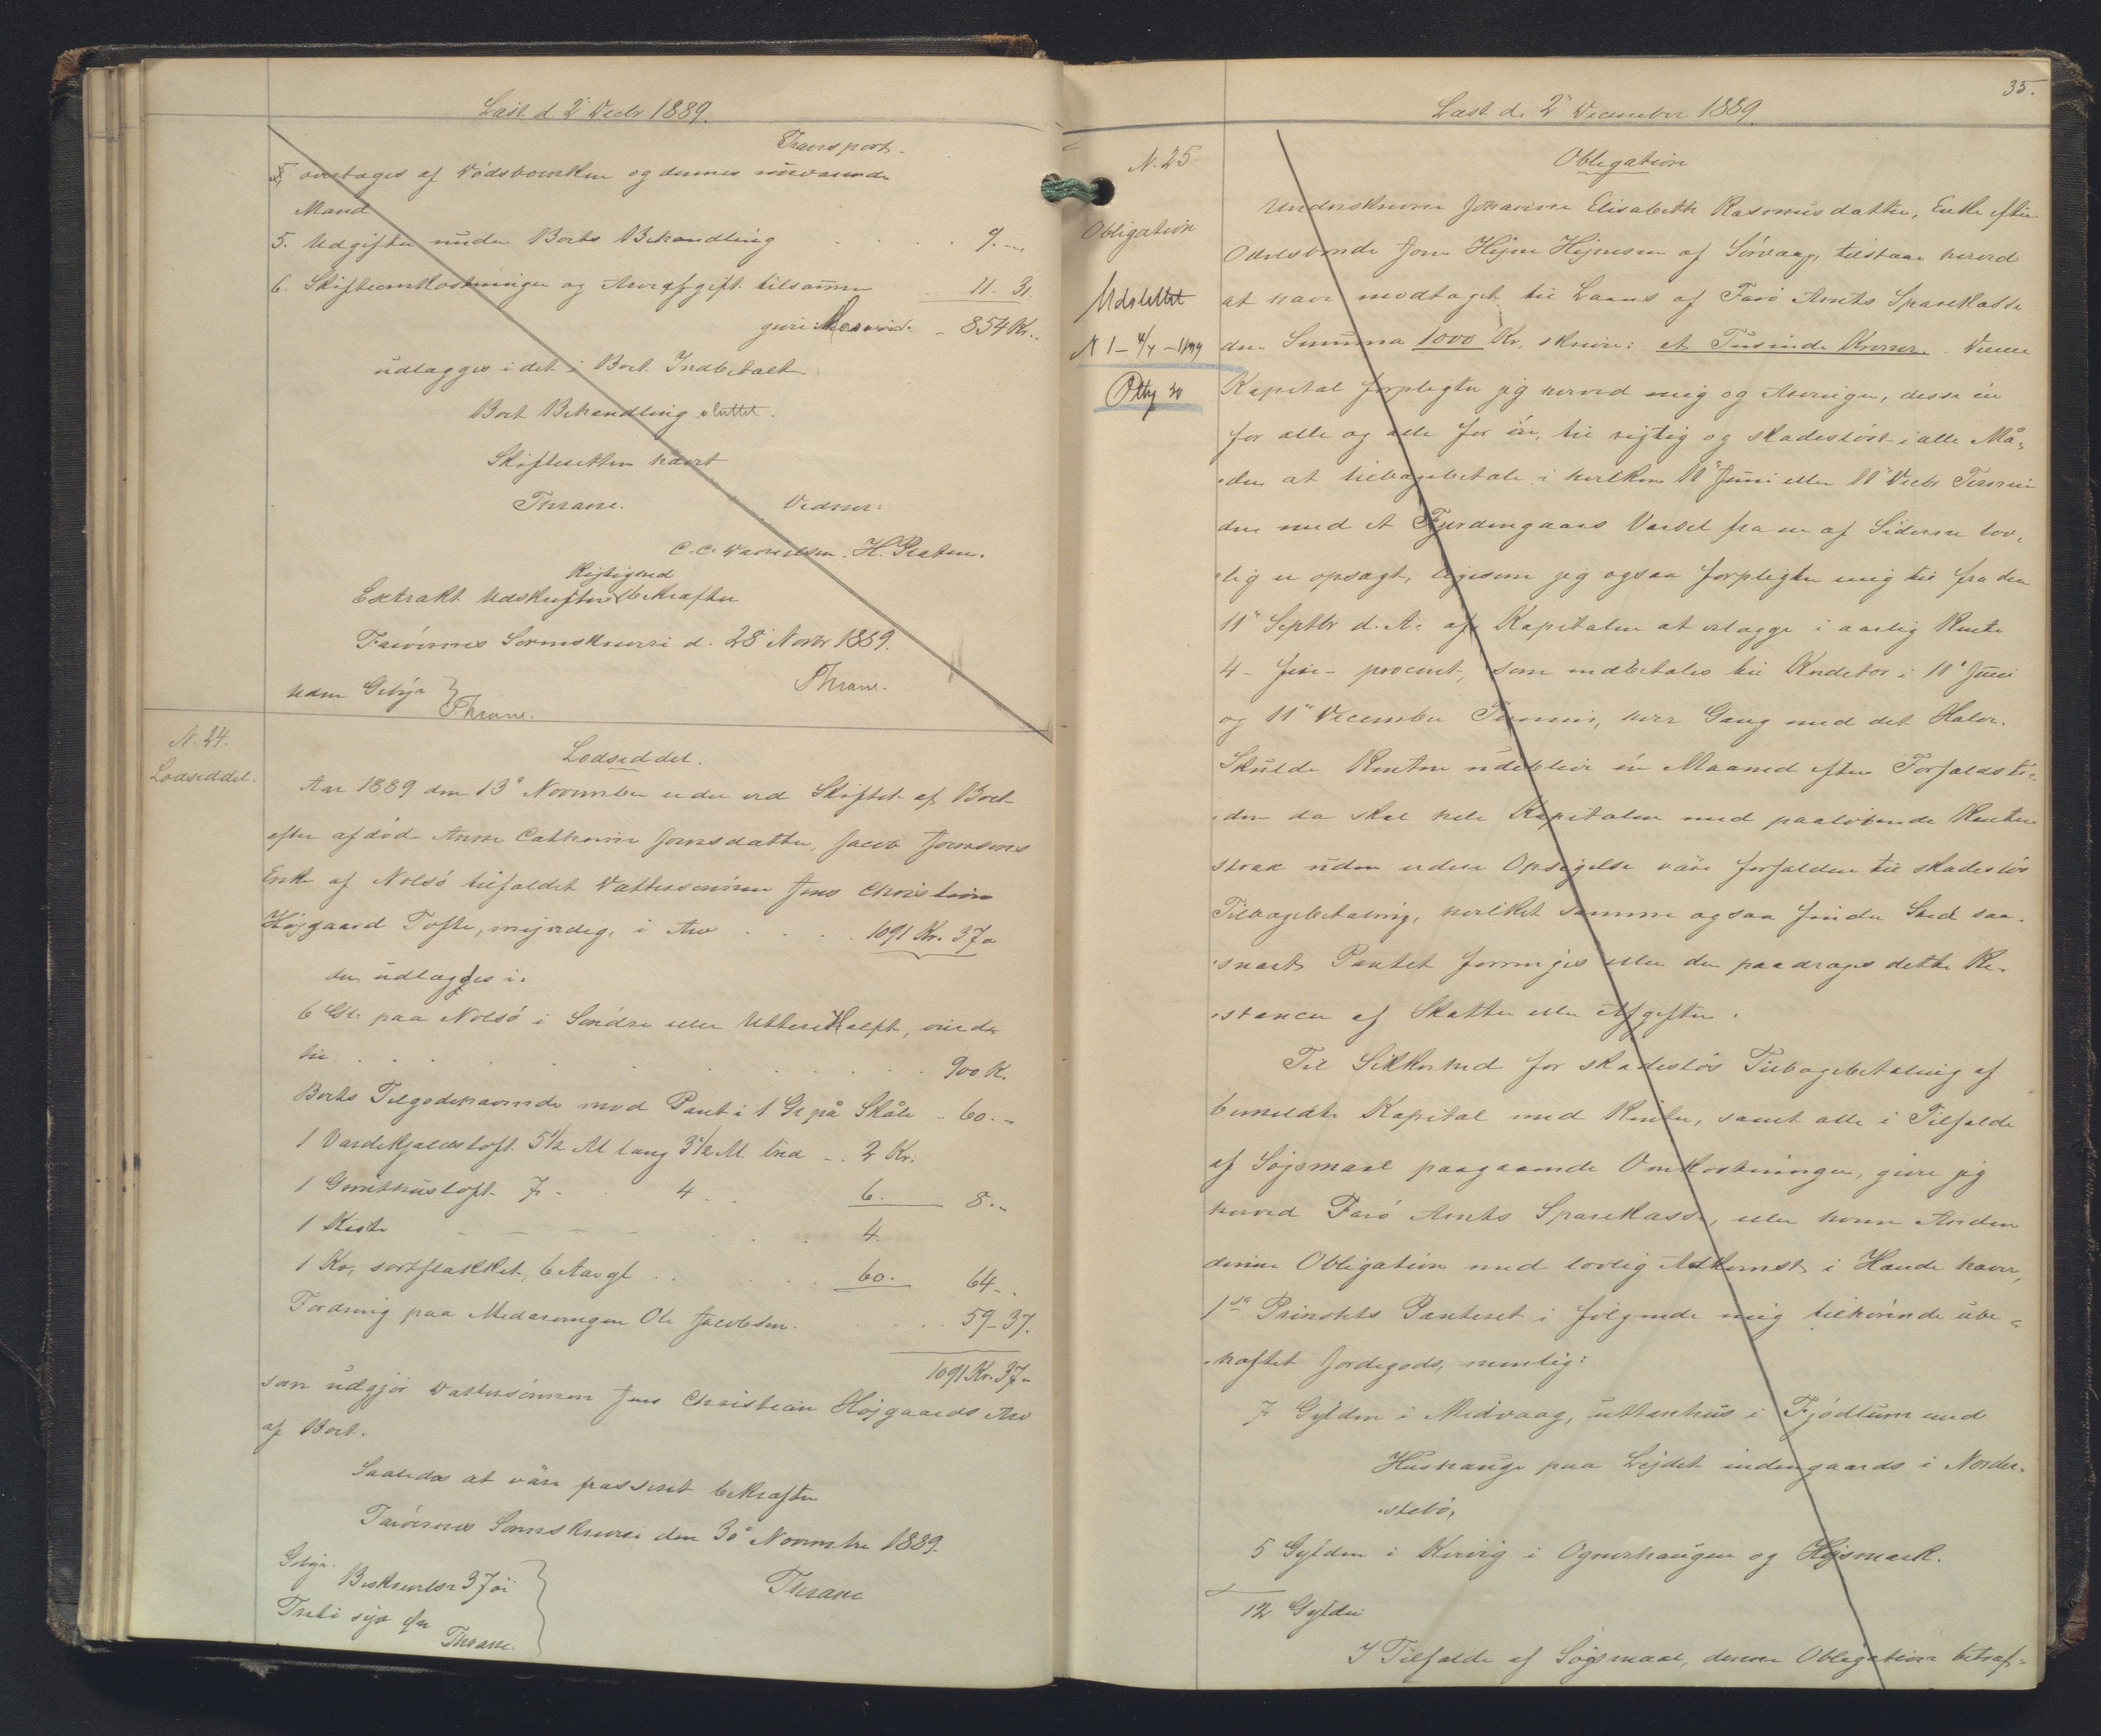 Læst d. 2" Decbr 1889.
Transport.
overtages af Dødsboenken og dennes nuværende
Mand
5. Udgifter under Boets Behandling . . . . 9. "
6. Skifteomkostninger og Arveafgift tilsammen 11 - 31
854 Kr. "
udlægges i det i Boet Indbetalte.
Boet Behandling sluttet.
Skifteretten hævet
Thrane. Vidner:
C. C. Danielsen. H.
Extrakt Udskriftens Rigtighed bekræfter
Færøernes Sorenskriveri d. 28 Novbr 1889.
Thrane.
Uden Gebyr } Thrane.
N. 24.
Lodseddel.
Lodseddel.
Aar 1889 den 13" November er der ved Skiftet af Boet
efter afdød Anne Cathrine Joensdatter, Jacob Joensens
Enke af Nolsö tilfaldet Dattersønnen Jens Christian
Højgaard Tofte, umyndig, i Arv . . . . 1091 Kr. 37 ø
der udlægges i:
6 Gl. paa Nolsö i Søndre eller Uttere Halft, vurderet
til . . . . 900 K.
Boets Tilgodehavende mod Pant i 1 Gl på Skåle - 60. "
1 Vardekjaldsloft 5 1/2 Al lang 3 1/2 Al. bred - . 2 Kr.
1 Gruthusloft 7 - 4 . . 6. 8. "
1 Kiste - - - - . . 4.
1 Ko, sortflakket, 6 Aar gl . . . 60. 64 - .
Fordring paa Medarvingen Ole Jacobsen. . . . 59 - 37.
1091 Kr. 37 "
som udgjør Dattersønnen Jens Christian Højgaards Arv
af Boet.
Saaledes at være passeret bekræfter
Færøernes Sorenskriveri den 30" November 1889.
Gebyr.
Beskrivelse 37 øre
Thrane
Thrane.
35.
Læst d. 2" December 1889
N. 25.
Obligation
Udslettet
N 1 - 4/4 - 1899
Obligation
Underskrevne Johanne Elisabeth Rasmusdatter, Enke efter
Odelsbonde Joen Hejne Hejnesen af Sørvaag, tilstaar herved
at have modtaget til Laans af Færø Amts Sparekasse
den Summa 1000 Kr, skriver: et Tusinde Kroner. Denne
Kapital forpligter jeg herved mig og Arvinger, disse én
for alle og alle for én, til rigtig og skadesløst i alle Må-
-der at tilbagebetale i hvilken 11" Juni eller 11" Decbr Termin
den med et Fjerdingaars Varsel fra en af Siderne lov-
-lig er opsagt, ligesom jeg ogsaa forpligter mig til fra den
11" Septbr d. A. af Kapitalen at erlægge i aarlig Rente
4 - fire - procent, som indbetales til Kreditor i 11" Juni
og 11" December Termin, hver Gang med det Halve.
Skulde Renten udeblive én Maaned efter Forfaldsti-
-den da skal hele Kapitalen med paaløbende Renter
strax uden videre Opsigelse være forfalden til skadesløs
Tilbagebetaling, hvilket samme ogsaa finder Sted saa-
-snart Pantet forringes eller der paadrages dette Re-
-stancer af Skatter eller Afgifter.
Til Sikkerhed for skadesløs Tilbagebetaling af
bemeldte Kapital med Renter, samt alle i Tilfælde
af Søgsmaal paagaaende Omkostninger, giver jeg
herved Færø Amts Sparekasse, eller hvem Anden
denne Obligation med lovlig Adkomst i Hænde haver,
1ste Prioritets Panteret i følgende mig tilhørende ube-
-hæftet Jordegods, nemlig:
7 Gylden i Midvaag, uttenhus i Fjödlum med
Hushauge paa Lejdet indengaards i Norder-
-stebö,
5 Gylden i Kvivig i Ognerhaugen og Højsmark.
12 Gylden
I Tilfælde af Søgsmaal, denne Obligation betræf-